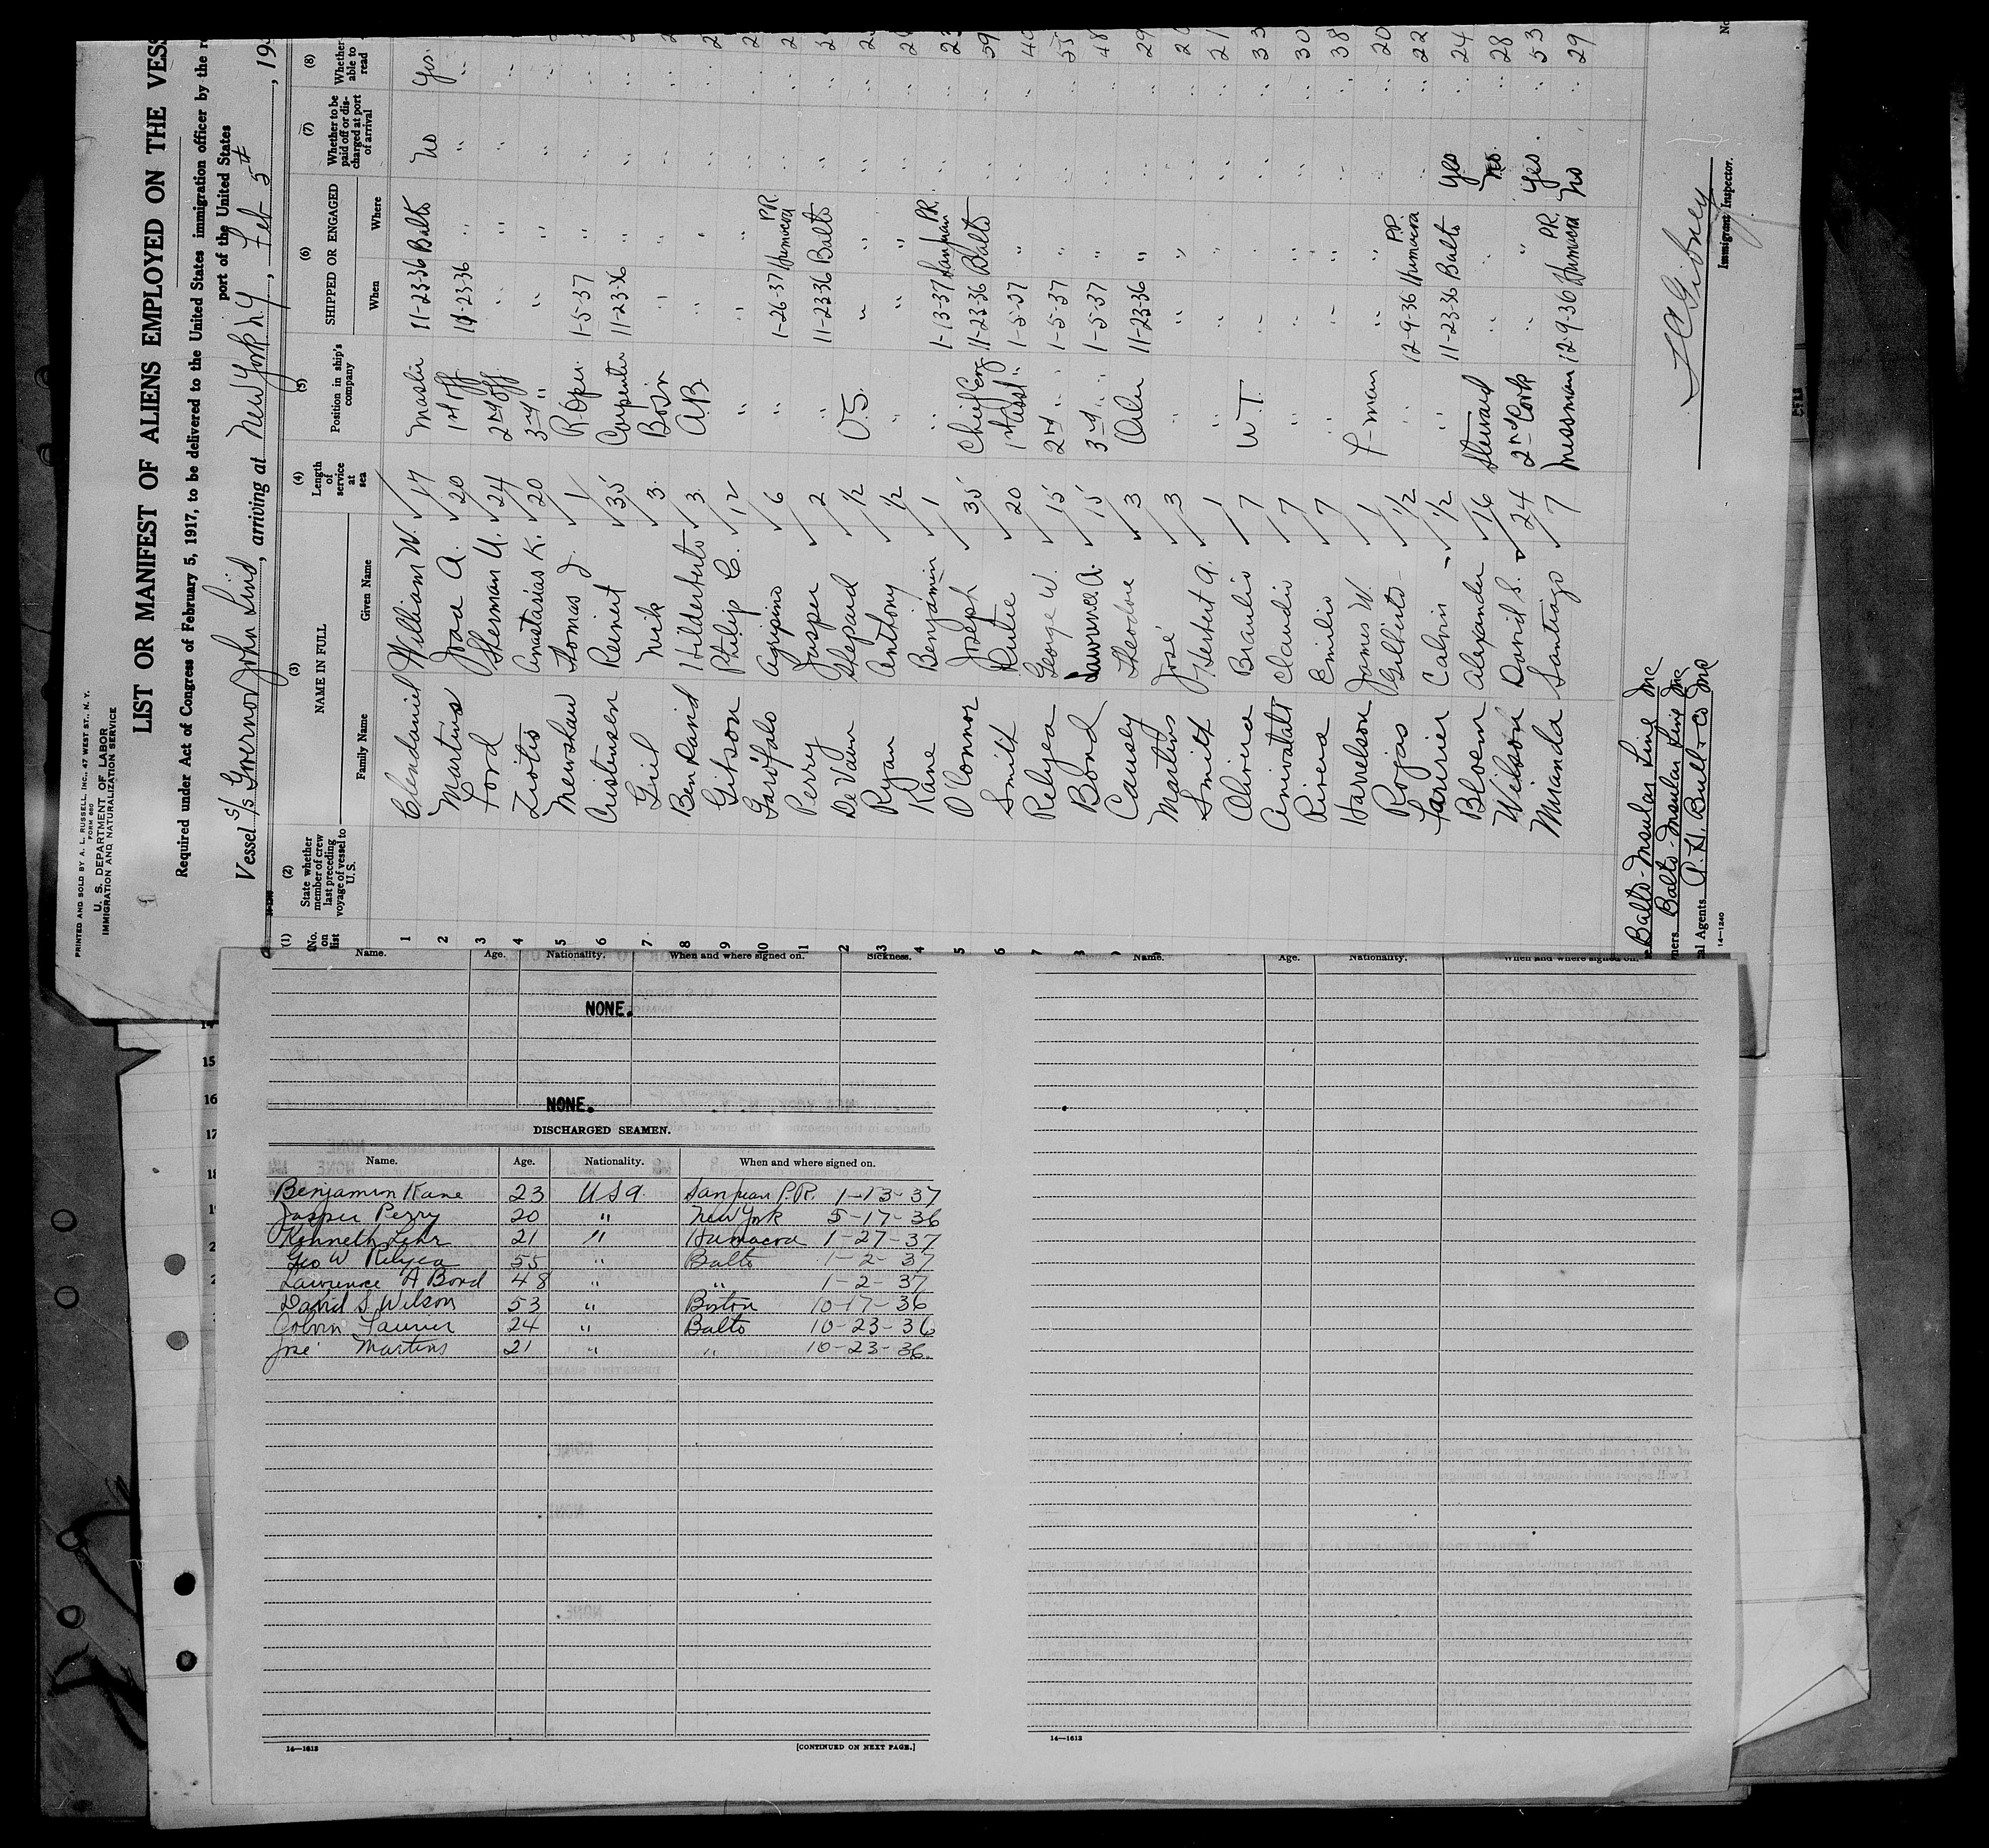 PRINTED AND SOLD BY A. L. RUSSELL, INC., 47 WEST ST., N. Y.
FORM 680
U. S. DEPARTMENT OF LABOR
IMMIGRATION AND NATURALIZATION SERVICE
LIST OR MANIFEST OF ALIENS EMPLOYED ON THE VESS
Required under Act of Congress of February 5, 1917, to be delivered to the United States immigration officer by the re
port of the United States
Vessel S/S Governor John Lind, arriving at New York N.Y., Feb 5th, 19
(1) (2) (3) (4) (5) (6) (7) (8)
No. on list State whether member of crew last preceding voyage of vessel to U. S. NAME IN FULL Length of service at sea Position in ship's company SHIPPED OR ENGAGED Whether to be paid off or discharged at port of arrival Whether able to read
Family Name Given Name When Where
1 Clendaniel William W. 17 Master 11-23-36 Balto No Yes
2 Martins Jose A. 20 1st off 11-23-36 " " "
3 Ford Sherman U. 24 2nd off " " " "
4 Ziotis Anastasias K. 20 3rd " " " " "
5 Mewshaw Thomas J. 1 R. Oper. 1-5-37 " " "
6 Cristensen Reinert 35 Carpenter 11-23-36 " " "
7 Griel Nick 3 Bos'n " " " "
8 Ben David Hilderberto 3 A.B. " " " "
9 Gibson Philip C. 12 " " " " "
10 Garofalo Agripino 6 " 1-26-37 Humacoa P.R. " "
11 Perry Jasper 2 " 11-23-36 Balto " "
2 DeVaun Shepard 1/2 O.S. " " " "
13 Ryan Anthony 1/2 " " " " "
4 Kane Benjamin 1 " 1-13-37 San Juan P.R. " " 23
5 O'Connor Joseph 35 Chief Eng 11-23-36 Balto " " 59
6 Smith Rutie 20 1st Asst " 1-5-37 " " " 40
7 Relyea George W. 15 2nd " 1-5-37 " " " 55
8 Bond Lawrence A. 15 3rd " 1-5-37 " " " 48
Causey Theodore 3 Oiler 11-23-36 " " " 29
Martins José 3 " " " " "
Smith Herbert A. 1 " " " " " 21
Olivera Braulio 7 W.T. " " " " 33
Claudio 7 " " " " " 30
Rivera Emilio 7 " " " " " 38
Harrelson James W. 1 F-man " " " " 20
Rojas Gilberto 1/2 " 12-9-36 Humacoa P.R. " " 22
Farrier Calvin 1/2 " 11-23-36 Balto Yes " 24
Bloem Alexander 16 Steward " " No " 28
Wilson David S. 24 2nd Cook " " Yes " 53
Miranda Santiago 7 Messman 12-9-36 Humacoa P.R. No " 29
Balto-Insular Line Inc
ners Balto-Insular Line Inc
al Agents A. H. Bull & Co Inc
14-1240
Immigrant Inspector.
Name. Age. Nationality. When and where signed on. Sickness.
Name. Age. Nationality. When and where signed on.
NONE.
NONE.
14
15
16
17
18
DISCHARGED SEAMEN.
Name. Age. Nationality. When and where signed on.
Benjamin Kane 23 USA. San Juan P.R. 1-13-37
Jasper Perry 20 " New York 5-17-36
Kenneth Lehr 21 " Humacoa 1-27-37
Geo W Relyea 55 " Balto 1-2-37
Lawrence A Bond 48 " " 1-2-37
David S. Wilson 53 " Boston 10-17-36
Calvin Faurier 24 " Balto 10-23-36
José Martins 21 " " 10-23-36
14-1613
[CONTINUED ON NEXT PAGE.]
14-1613